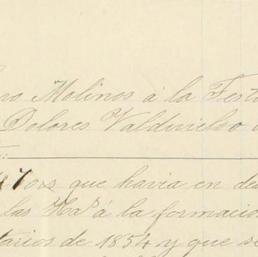 Molinos á la Testa
Dolores Valdivielso
que havia en de
las Has á la formacio
tarios de 1854 y que se